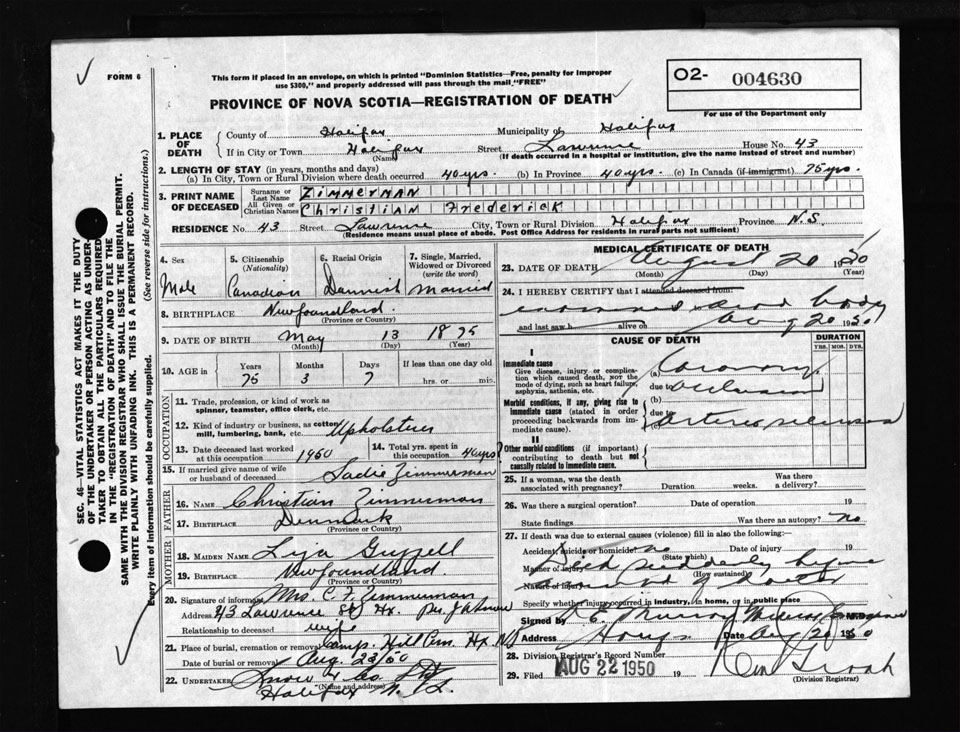 FORM 6
This form if placed in an envelope, on which is printed "Dominion Statistics—Free, penalty for improper
use $300," and properly addressed will pass through the mail "FREE"
02- 004630
PROVINCE OF NOVA SCOTIA—REGISTRATION OF DEATH
For use of the Department only
1. PLACE OF DEATH
County of Halifax Municipality of Halifax
If in City or Town Halifax Street Lawrence House No. 43
(Name) (If death occurred in a hospital or institution, give the name instead of street and number)
2. LENGTH OF STAY (in years, months and days)
(a) In City, Town or Rural Division where death occurred 40 yrs. (b) In Province 40 yrs. (c) In Canada (if immigrant) 75 yrs.
3. PRINT NAME OF DECEASED
Surname or Last Name ZIMMERMAN
All Given or Christian Names Christian Frederick
RESIDENCE No. 43 Street Lawrence City, Town or Rural Division Halifax Province N.S.
(Residence means usual place of abode. Post Office Address for residents in rural parts not sufficient)
4. Sex Male
5. Citizenship (Nationality) Canadian
6. Racial Origin Dannish
7. Single, Married, Widowed or Divorced (write the word) Married
8. BIRTHPLACE Newfoundland.
(Province or Country)
9. DATE OF BIRTH May 13 1875
(Month) (Day) (Year)
10. AGE IN Years 75 Months 3 Days 7 If less than one day old hrs. or min.
OCCUPATION
11. Trade, profession, or kind of work as
spinner, teamster, office clerk, etc.
12. Kind of industry or business, as cotton
mill, lumbering, bank, etc. Upholsterer
13. Date deceased last worked at this occupation 1950
14. Total yrs. spent in this occupation 40 yrs
15. If married give name of wife
or husband of deceased Sadie Zimmerman
FATHER
16. NAME Christian Zimmerman
17. BIRTHPLACE Denmark
(Province or Country)
MOTHER
18. MAIDEN NAME
19. BIRTHPLACE Newfoundland.
(Province or Country)
20. Signature of informant Mrs. C. F. Zimmerman
Address 43 Lawrence St Hx.
Relationship to deceased wife
21. Place of burial, cremation or removal Camp Hill Cem. Hx. NS
Date of burial or removal Aug. 22/50
22. UNDERTAKER Snow & Co. Ltd
(Name and address)
Halifax N.S.
MEDICAL CERTIFICATE OF DEATH
23. DATE OF DEATH August 20 1950
(Month) (Day) (Year)
24. I HEREBY CERTIFY that I attended deceased from:
examined dead body
and last saw h alive on Aug 20 1950
CAUSE OF DEATH
DURATION
YRS. MOS. DYS.
I
Immediate cause
Give disease, injury or complication which caused death, NOT the mode of dying, such as heart failure, asphyxia, asthenia, etc.
(a) Coronary
due to occlusion
Morbid conditions, if any, giving rise to immediate cause (stated in order proceeding backwards from immediate cause).
(b)
due to Arteriosclerosis
(c)
II
Other morbid conditions (if important) contributing to death but not causally related to immediate cause.
25. If a woman, was the death
associated with pregnancy? Duration weeks. Was there a delivery?
26. Was there a surgical operation? Date of operation 19
State findings Was there an autopsy? no
27. If death was due to external causes (violence) fill in also the following:
Accident, suicide or homicide? no Date of injury 19
(State which)
Manner of injury Died suddenly before
(How sustained)
Nature of injury arrival of doctor
Specify whether injury occurred in industry, in home, or in public place
Signed by E. Murray Medical Examiner M.D.
Address Date Aug 20 1950
28. Division Registrar's Record Number
29. Filed AUG 22 1950 19
(Division Registrar)
SEC. 46—VITAL STATISTICS ACT MAKES IT THE DUTY
OF THE UNDERTAKER OR PERSON ACTING AS UNDER-
TAKER TO OBTAIN ALL THE PARTICULARS REQUIRED
IN THE "REGISTRATION OF DEATH" AND TO FILE THE
SAME WITH THE DIVISION REGISTRAR WHO SHALL ISSUE THE BURIAL PERMIT.
WRITE PLAINLY WITH UNFADING INK. THIS IS A PERMANENT RECORD.
Every item of information should be carefully supplied. (See reverse side for instructions.)